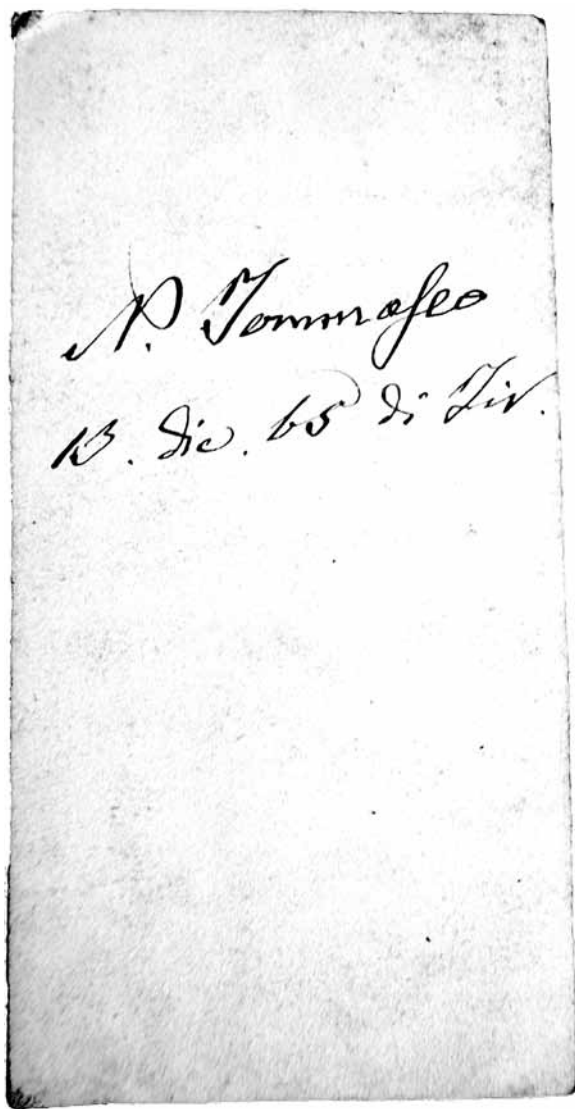 N. Tommaseo
13. dic. 65 di Fir.